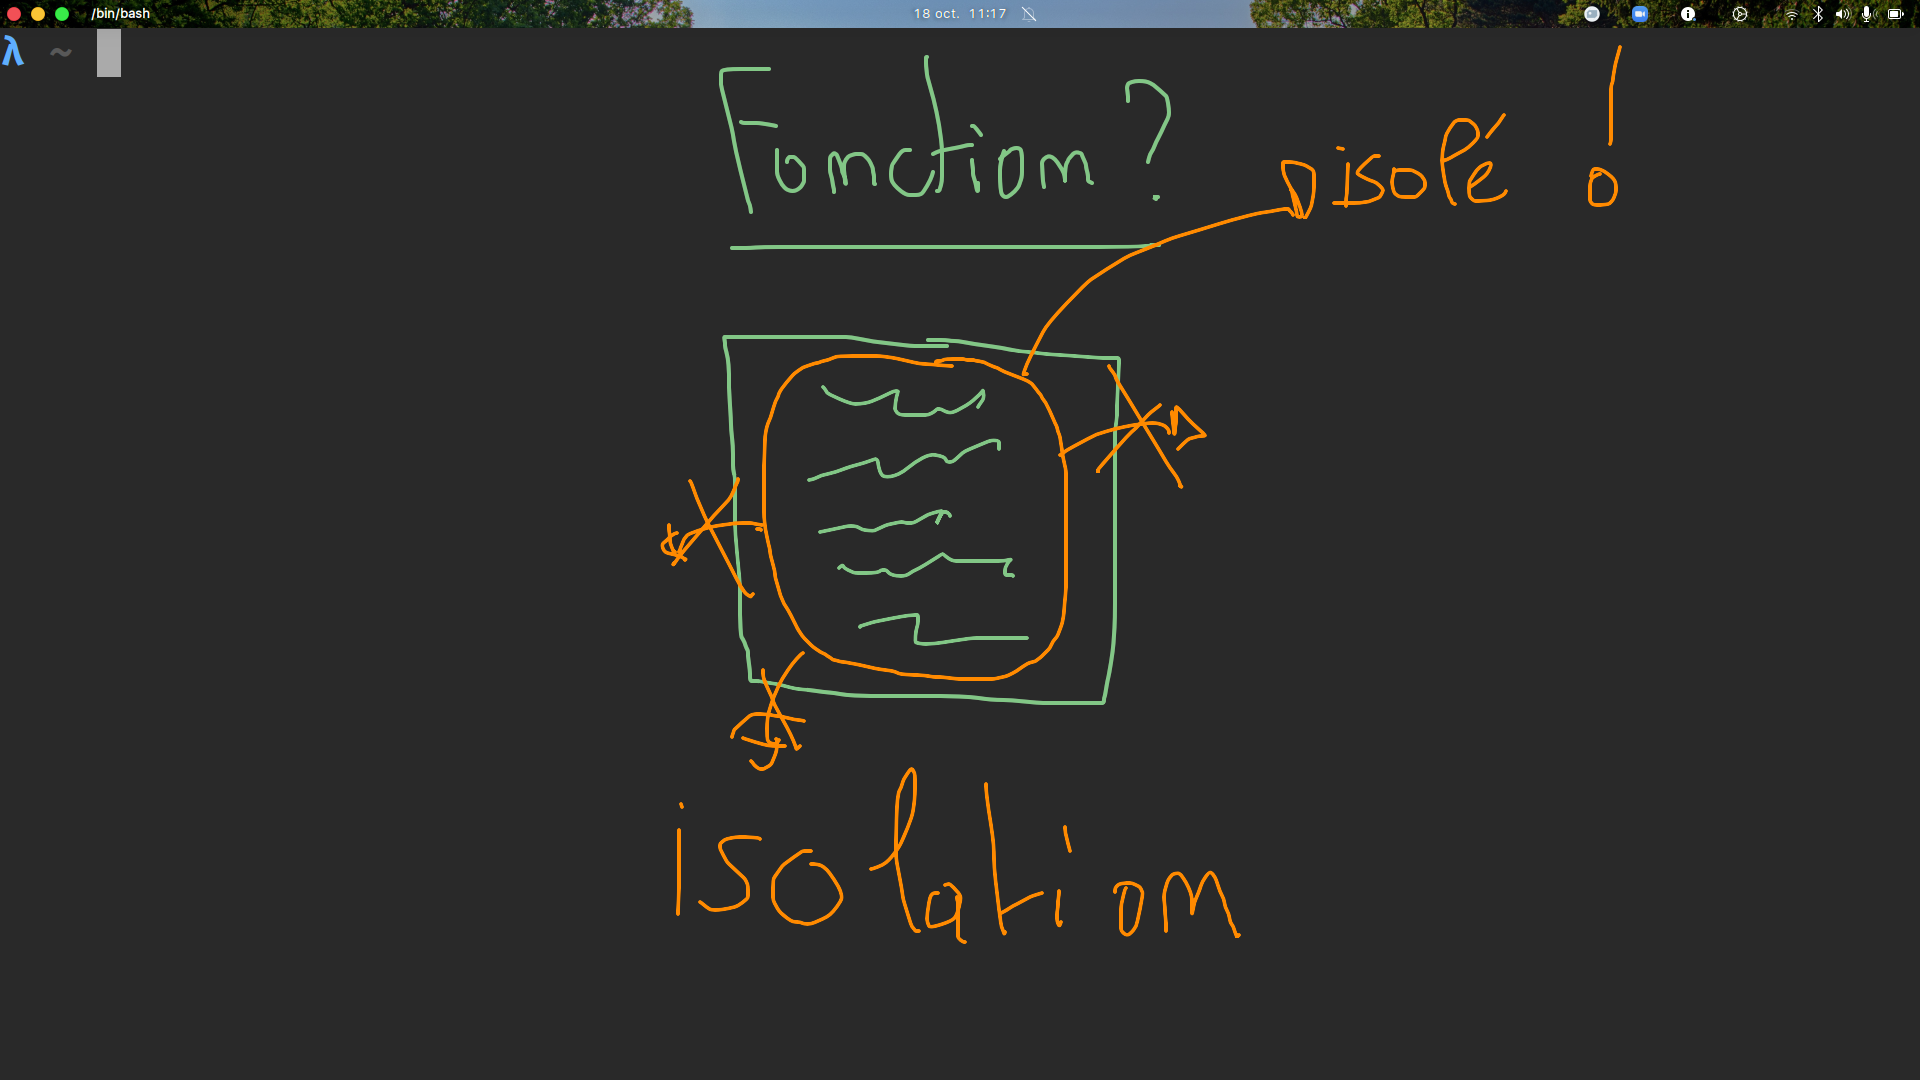 /bin/bash
18 oct. 11:17
λ ~
Fonction ?
isolé !
isolation